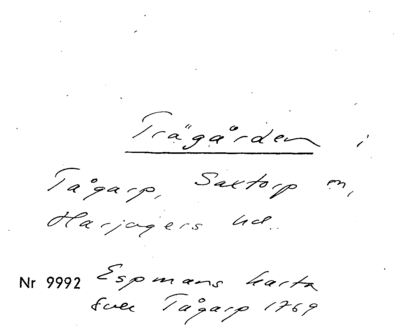 Trägården i
Tågarp, Saxtorp sn,
Harjagers hd.
Nr 9992 Espmans karta
över Tågarp 1769